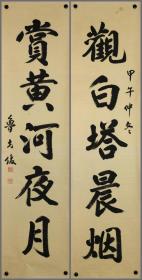 觀白塔晨烟
甲午仲冬
賞黄河夜月
魯